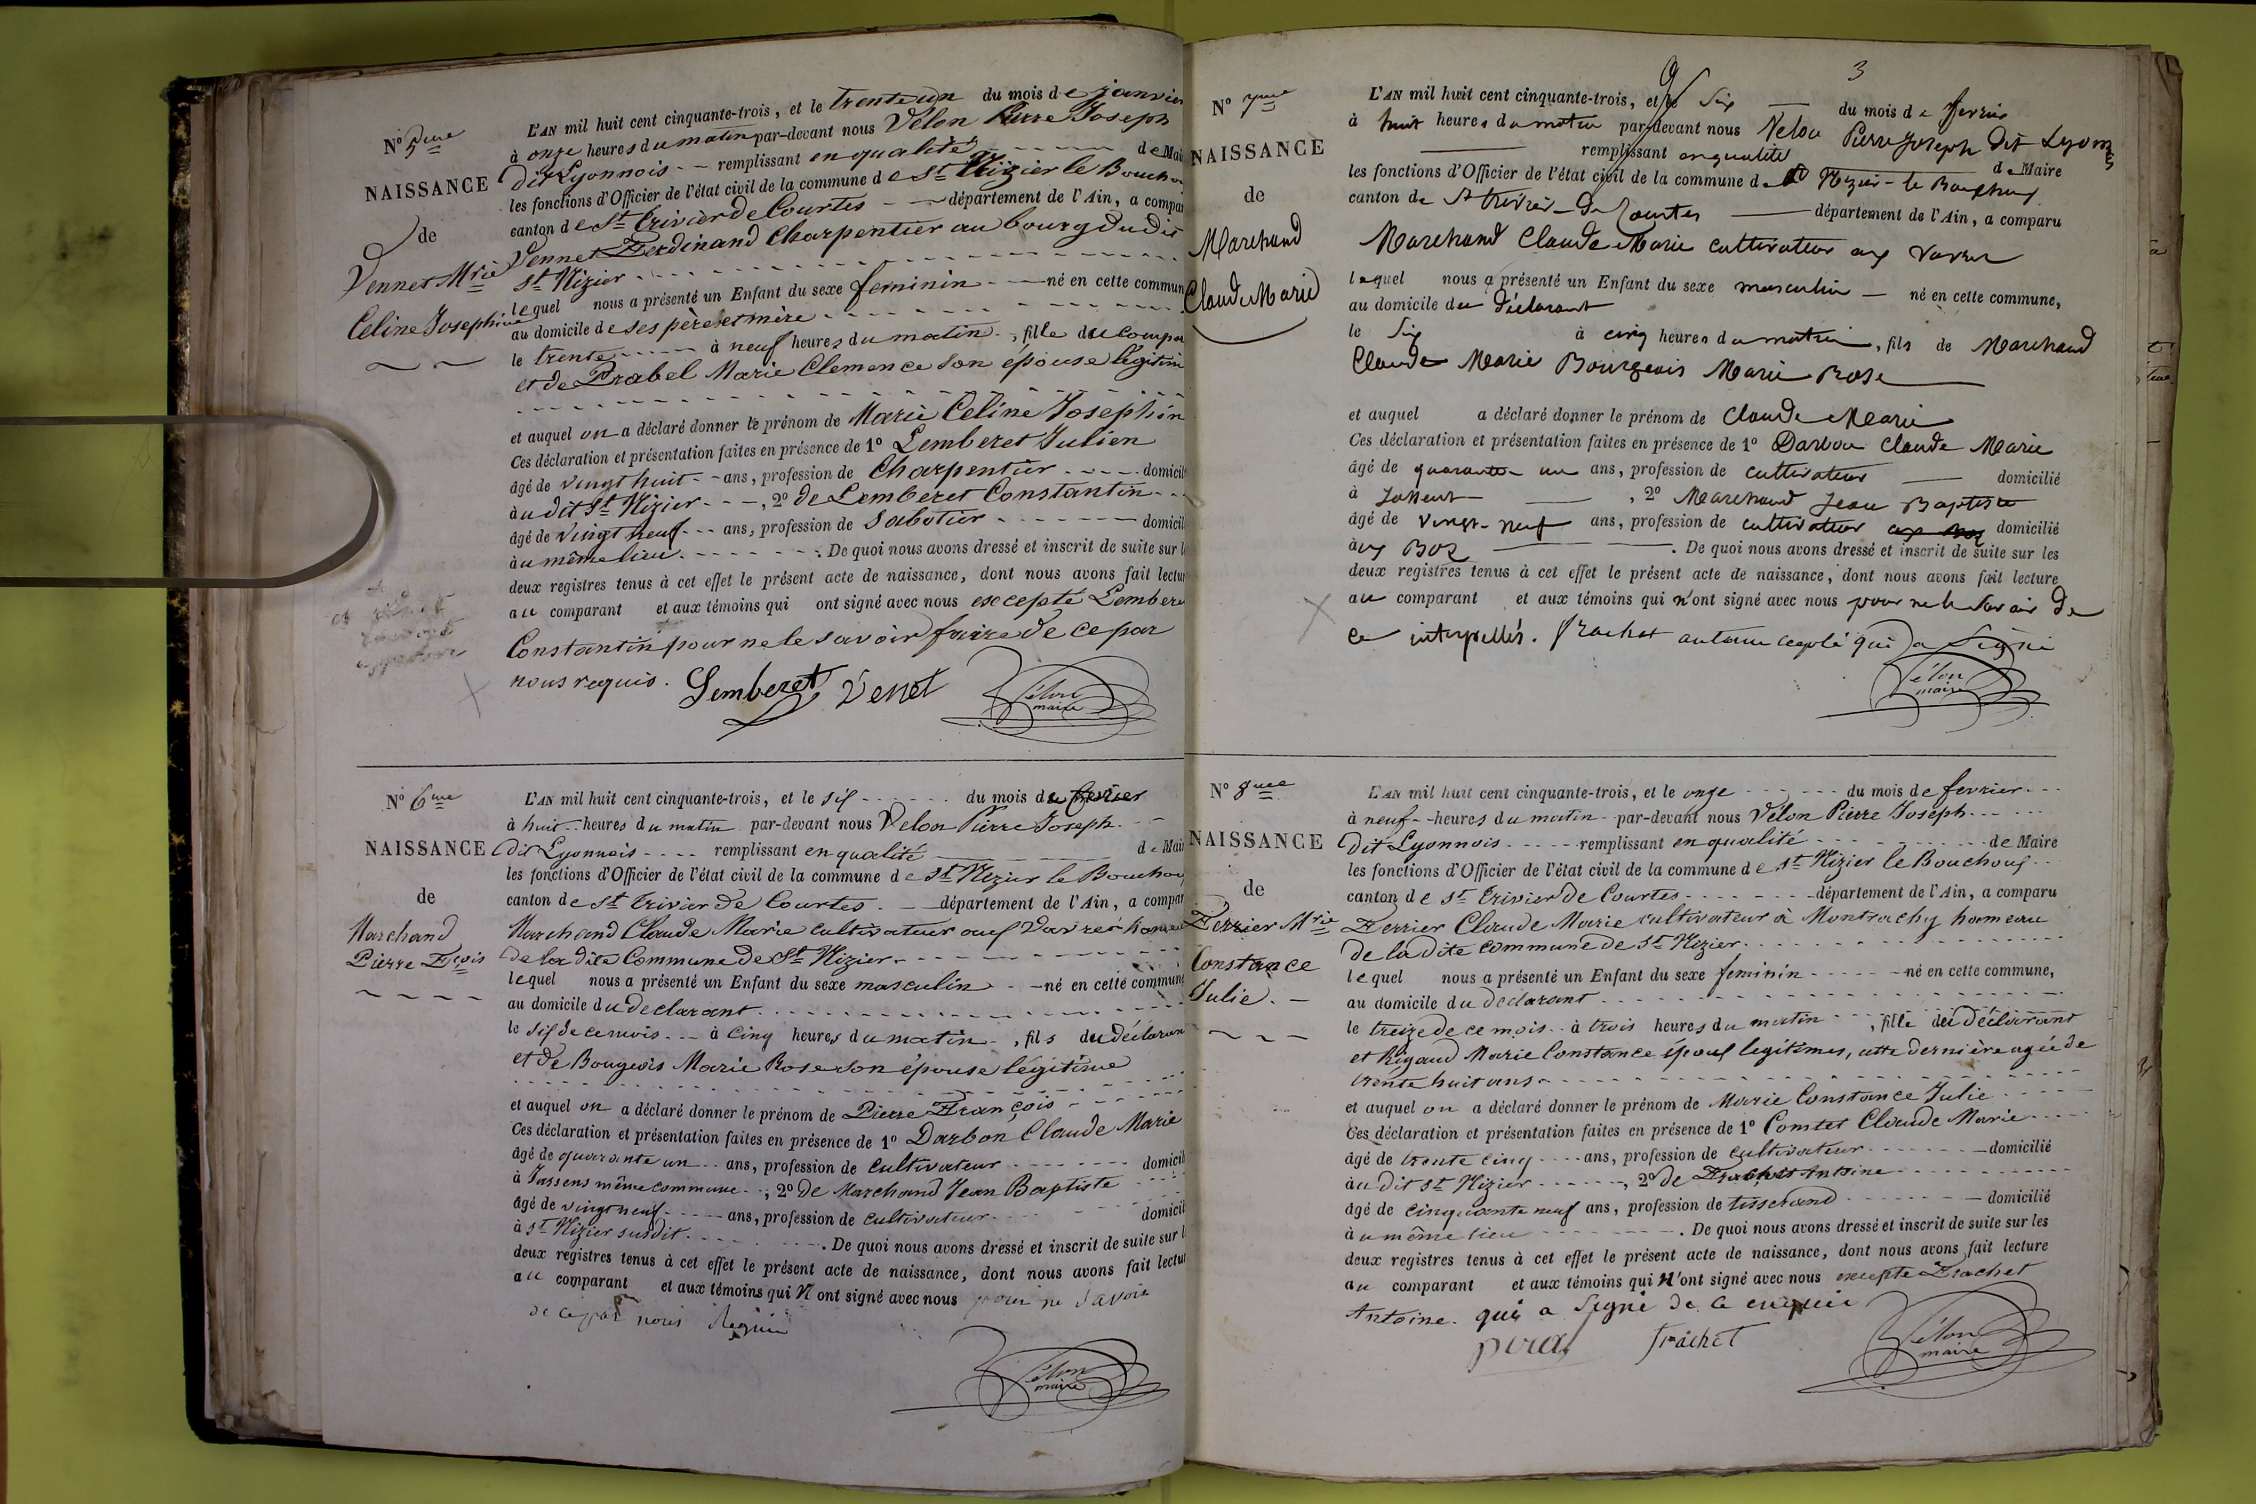 N° 5me
NAISSANCE
de
Vennet Mrie
Celine Josephine
L'AN mil huit cent cinquante-trois, et le trente un du mois de janvier
à onze heures du matin par-devant nous Vélon Pierre Joseph
dit Lyonnais remplissant en qualité de Mai
les fonctions d'Officier de l'état civil de la commune de St Nizier le Boucho
canton de St Trivier de Courtes département de l'Ain, a compar
Vennet Ferdinand Charpentier au bourg dudit
St Nizier
lequel nous a présenté un Enfant du sexe feminin né en cette commun
au domicile de ses père et mère
le trente à neuf heures du matin, fille du compa
et de Prabel Marie Clemence son épouse légitim
et auquel on a déclaré donner le prénom de Marie Celine Joséphin
Ces déclaration et présentation faites en présence de 1° Lemberet Julien
âgé de vingt huit ans, profession de Charpentier domicili
à u dit St Nizier, 2° de Lemberet Constantin
âgé de vingt neuf ans, profession de Sabotier domicili
à u même lieu. De quoi nous avons dressé et inscrit de suite sur l
deux registres tenus à cet effet le présent acte de naissance, dont nous avons fait lectur
au comparant et aux témoins qui ont signé avec nous excepté Lembere
Constantin pour ne le savoir faire de ce par
nous requis. Lemberet Venet Vélon
maire
N° 6me
NAISSANCE
de
Marchand
Pierre Fçois
L'AN mil huit cent cinquante-trois, et le six du mois de fevrier
à huit heures du matin par-devant nous Vélon Pierre Joseph
dit Lyonnais remplissant en qualité de Mair
les fonctions d'Officier de l'état civil de la commune de St Nizier le Bouchou
canton de St Trivier de Courtes département de l'Ain, a compar
Marchand Claude Marie cultivateur aux Vavres hameau
de la dite Commune de St Nizier
lequel nous a présenté un Enfant du sexe masculin né en cette commune
au domicile du declarant
le six de ce mois à cinq heures du matin, fils du déclaran
et de Bougeois Marie Rose son épouse légitime
et auquel on a déclaré donner le prénom de Pierre François
Ces déclaration et présentation faites en présence de 1° Darbon Claude Marie
âgé de quarante un ans, profession de cultivateur domicili
à Jassens même commune, 2° de Marchand Jean Baptiste
âgé de vingt neuf ans, profession de cultivateur domicili
à St Nizier susdit. De quoi nous avons dressé et inscrit de suite sur l
deux registres tenus à cet effet le présent acte de naissance, dont nous avons fait lectur
au comparant et aux témoins qui n'ont signé avec nous pour ne savoir
de ce par nous Requis
Vélon
maire
3
N° 7me
NAISSANCE
de
Marchand
Claude Marie
L'AN mil huit cent cinquante-trois, et le six du mois de fevrier
à huit heures du matin par-devant nous Velon Pierre Joseph dit Lyonnais
remplissant en qualité de Maire
les fonctions d'Officier de l'état civil de la commune de St Nizier-le Bouchoux
canton de St trivier-de Courtes département de l'Ain, a comparu
Marchand Claude Marie cultivateur aux Vavres
lequel nous a présenté un Enfant du sexe masculin né en cette commune,
au domicile du déclarant
le Six à cinq heures du matin, fils de Marchand
Claude Marie Bourgeois Marie Rose
et auquel a déclaré donner le prénom de Claude Marie
Ces déclaration et présentation faites en présence de 1° Darbon Claude Marie
âgé de quarante un ans, profession de cultivateur domicilié
à Jassens, 2° Marchand Jean Baptiste
âgé de vingt-neuf ans, profession de cultivateur domicilié
à ux Boz. De quoi nous avons dressé et inscrit de suite sur les
deux registres tenus à cet effet le présent acte de naissance, dont nous avons fait lecture
au comparant et aux témoins qui n'ont signé avec nous pour ne le savoir de
ce interpellés. frachet qui a Signé
Vélon
maire
N° 8me
NAISSANCE
de
Ferrier Mrie
Constance
Julie.
L'AN mil huit cent cinquante-trois, et le onze du mois de fevrier
à neuf heures du matin par-devant nous Vélon Pierre Joseph
dit Lyonnais remplissant en qualité de Maire
les fonctions d'Officier de l'état civil de la commune de St Nizier le Bouchoux
canton de St Trivier de Courtes département de l'Ain, a comparu
Ferrier Claude Marie cultivateur à Montrachy hameau
de la dite commune de St Nizier
lequel nous a présenté un Enfant du sexe feminin né en cette commune,
au domicile du declarant
le treize de ce mois à trois heures du matin, fille du déclarant
et Rigaud Marie Constance époux legitimes, cette dernière agée de
trente huit ans
et auquel on a déclaré donner le prénom de Marie Constance Julie
Ces déclaration et présentation faites en présence de 1° Comtet Claude Marie
âgé de trente cinq ans, profession de cultivateur domicilié
à u dit St Nizier, 2° de Frachet Antoine
âgé de cinquante neuf ans, profession de tisserand domicilié
à u même lieu. De quoi nous avons dressé et inscrit de suite sur les
deux registres tenus à cet effet le présent acte de naissance, dont nous avons fait lecture
au comparant et aux témoins qui n'ont signé avec nous excepté Frachet
Antoine. qui a Signé de ce enquis
frachet Vélon
maire